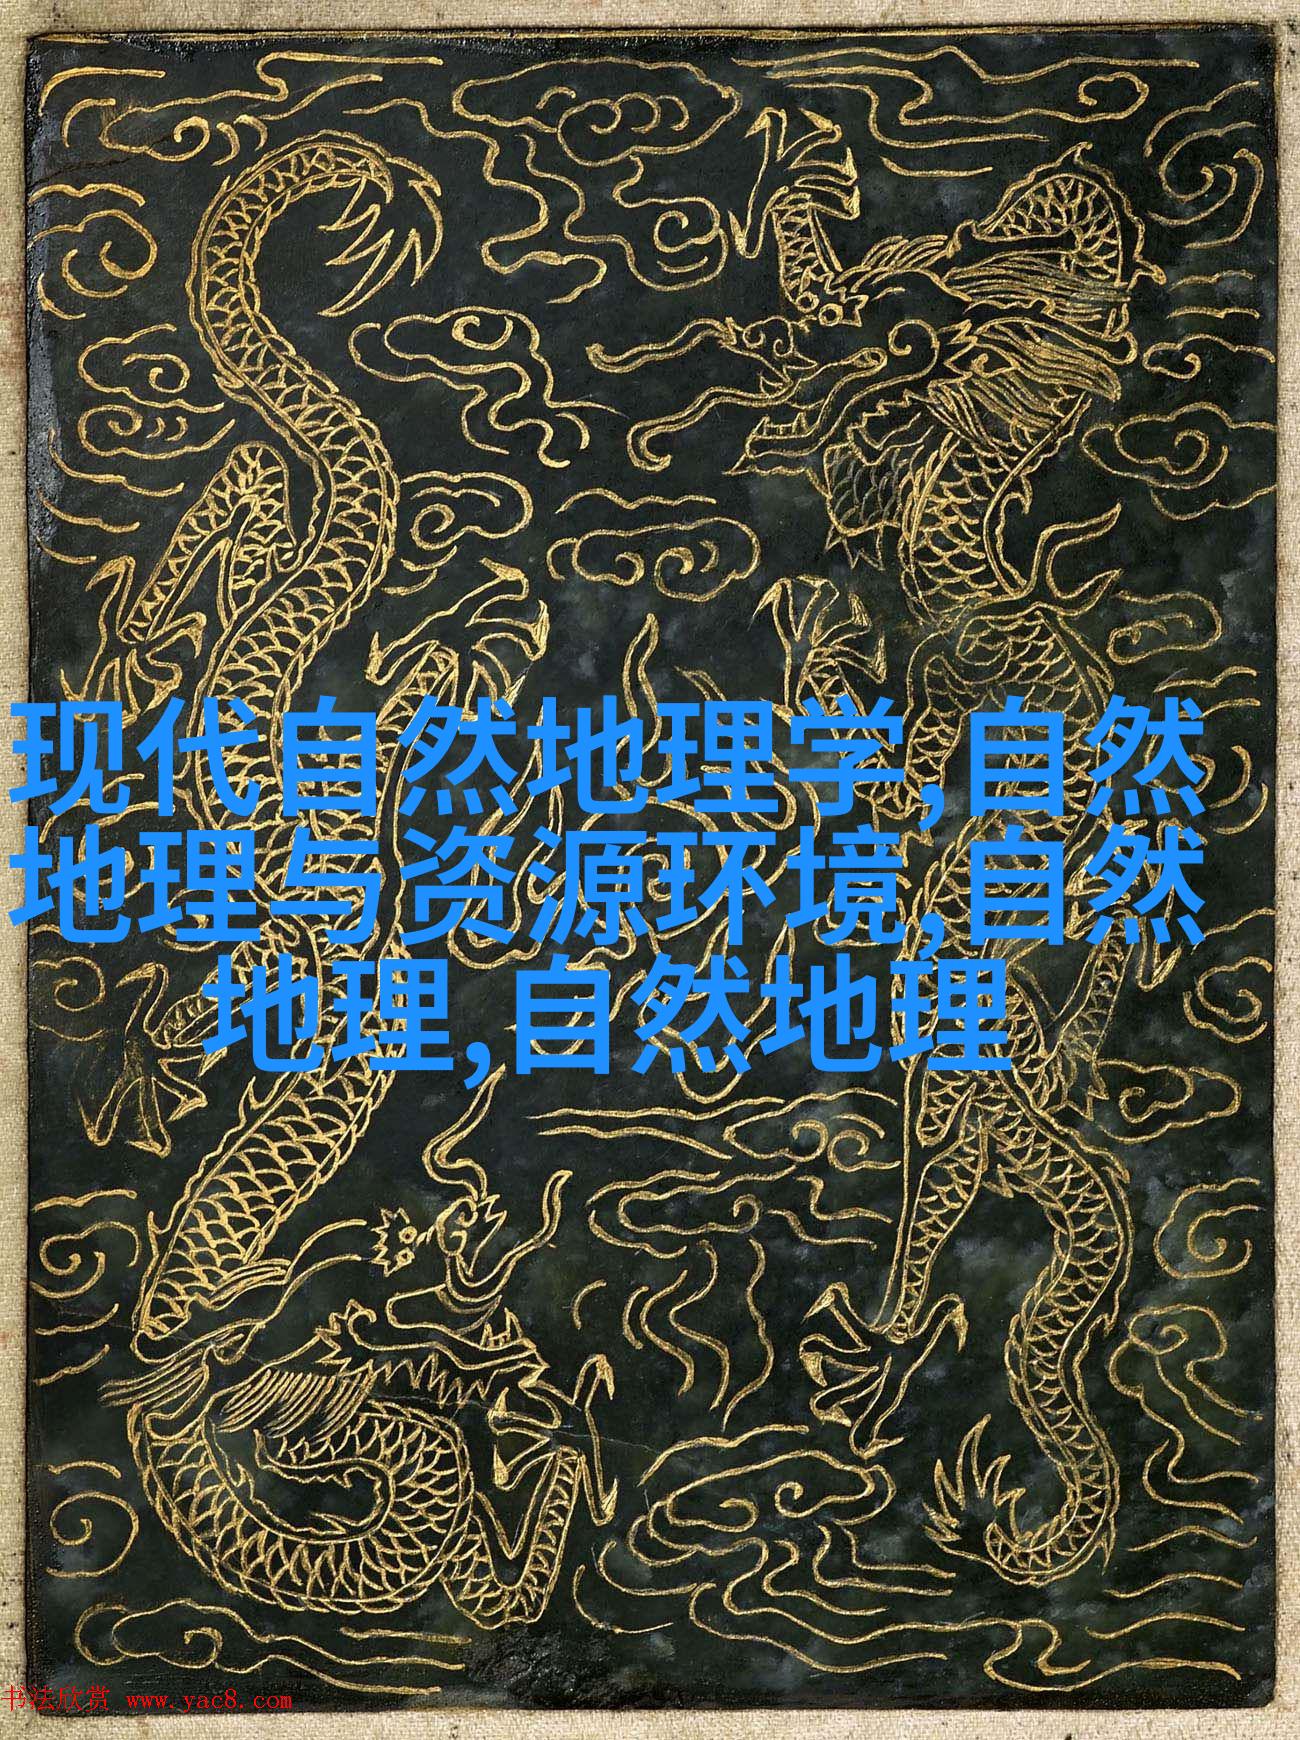 现代自然地理学,自然
地理与资源环境,自然
地理,自然地理
书法欣赏 www.yac8.com